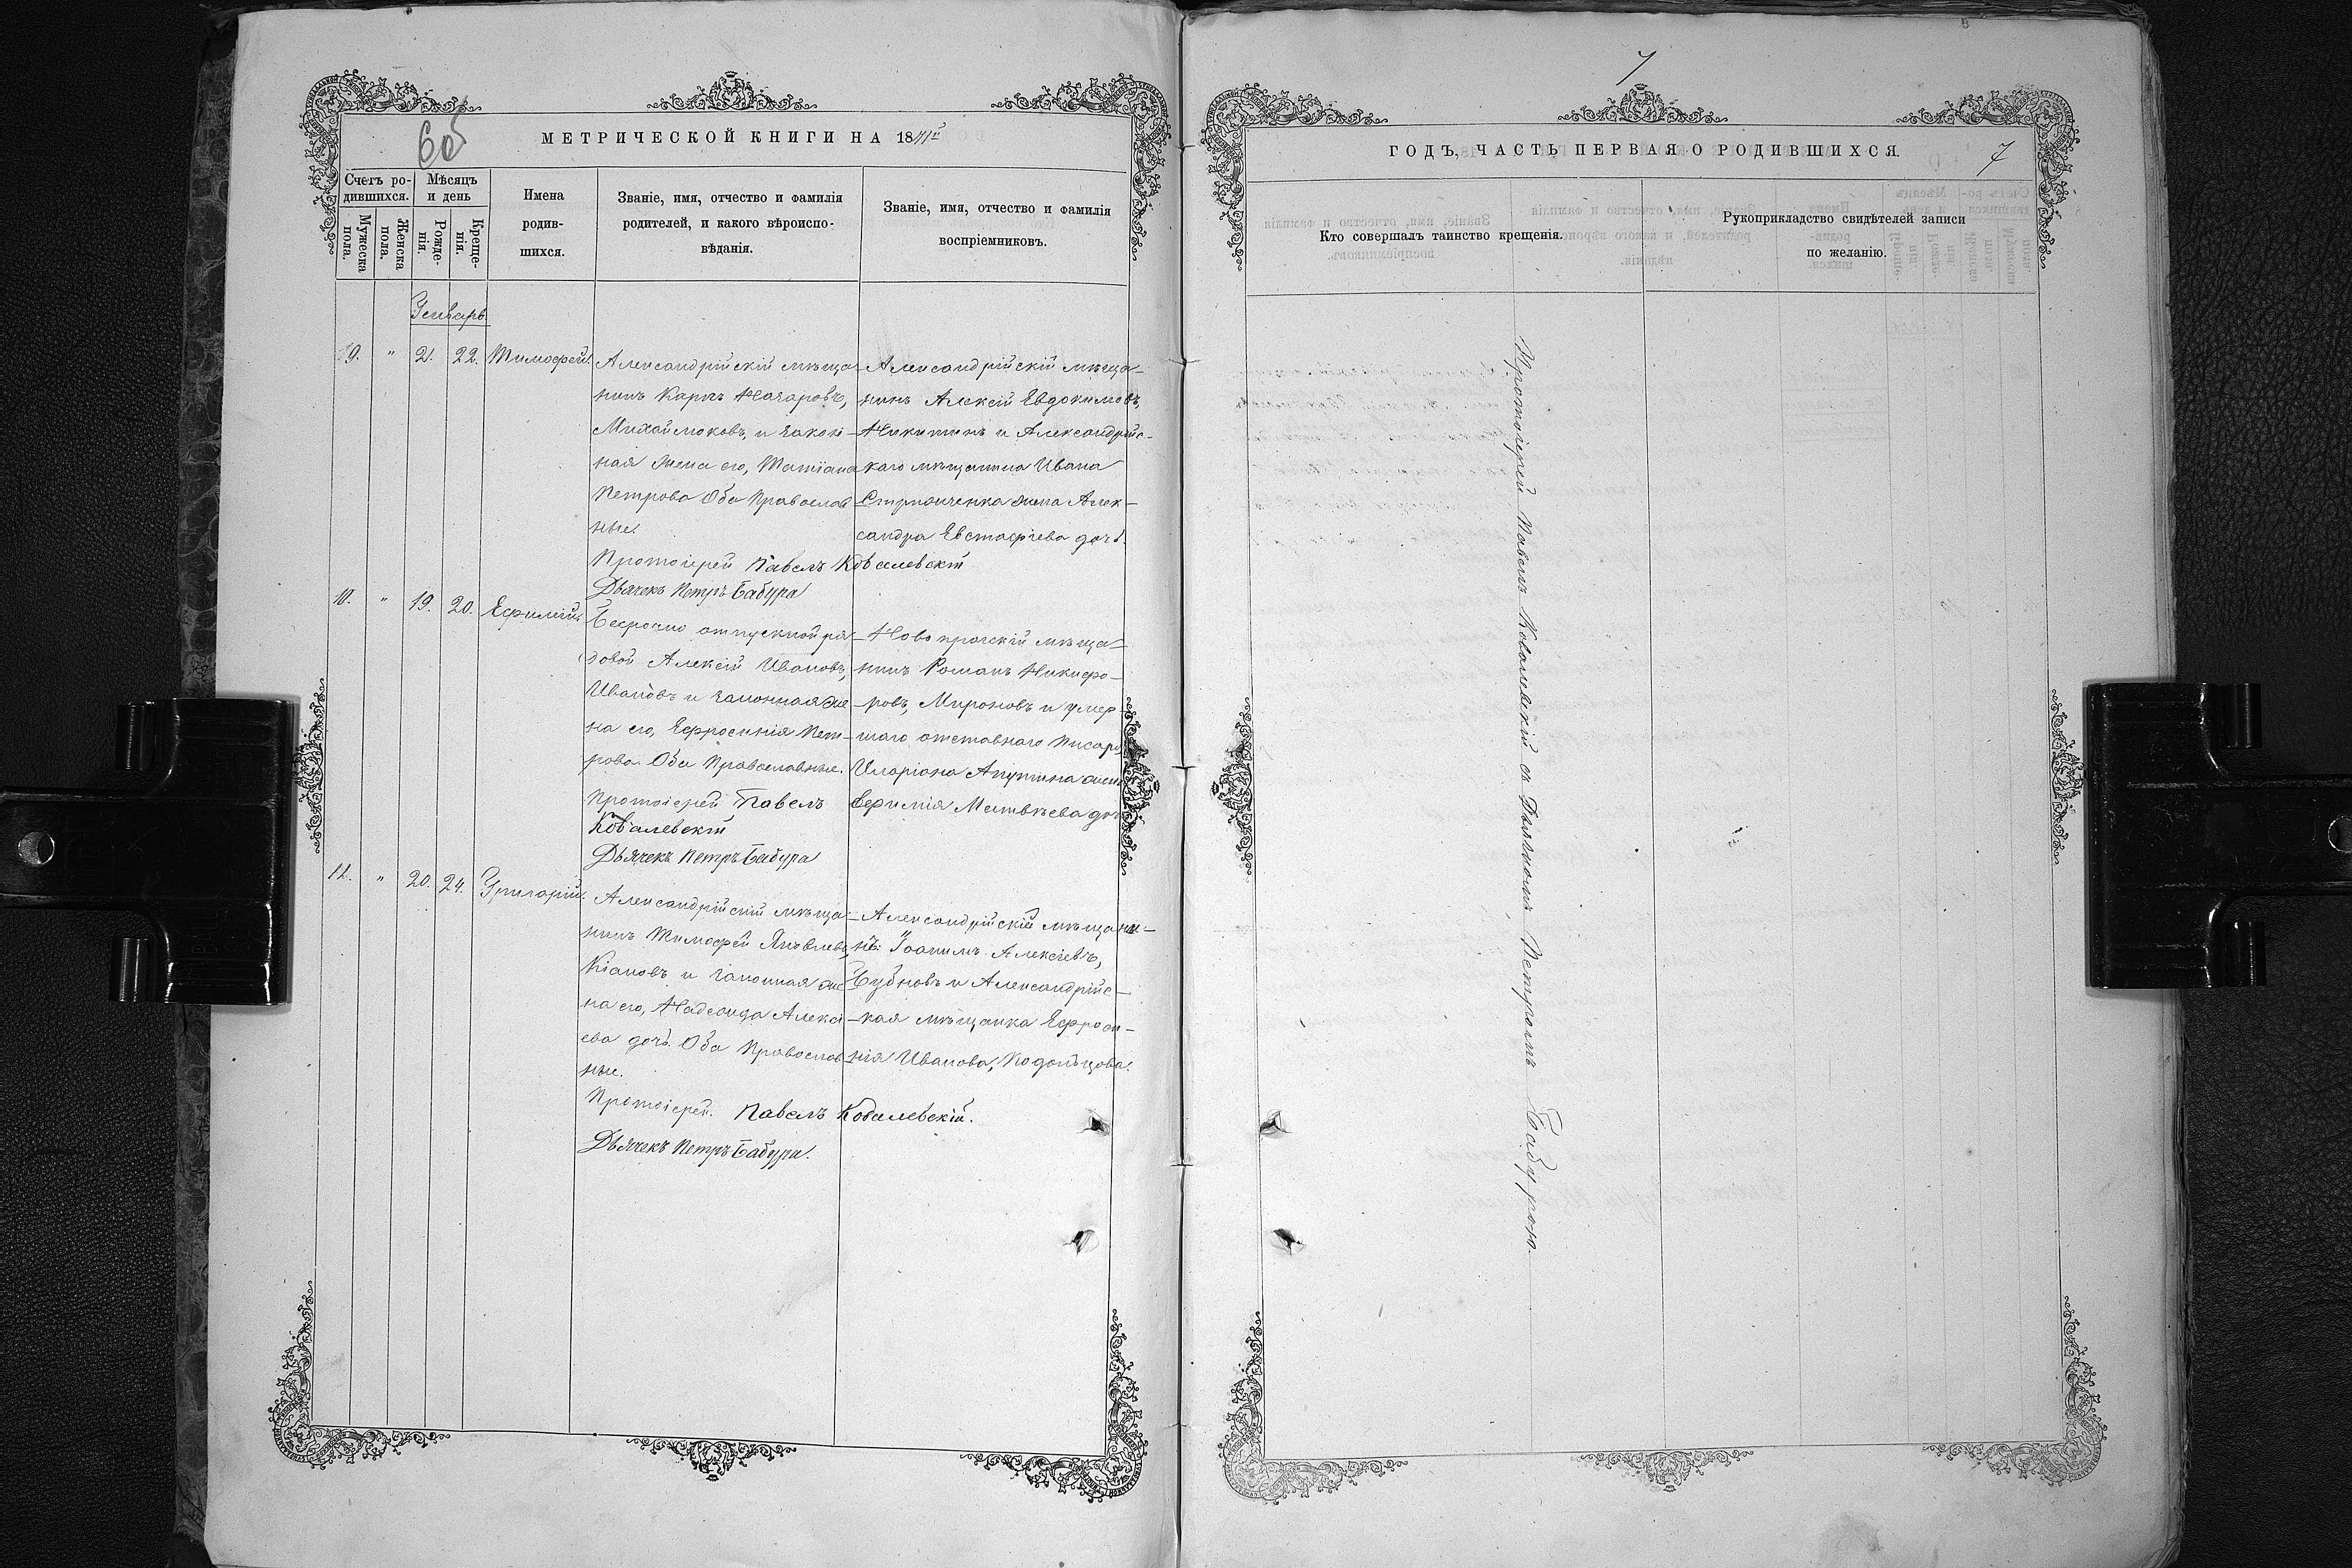 6 об
МЕТРИЧЕСКОЙ КНИГИ НА 18
Счетъ родившихся.
Мужеска пола.
Женска пола.
Мѣсяцъ и день
Рожденія.
Крещенія.
Имена
родив-
шихся.
Званіе, имя, отчество и фамилія
родителей, и какого вѣроиспо-
вѣданія.
Званіе, имя, отчество и фамилія
воспріемниковъ.
Январь.
9. " 21. 22. Тимофей.
Александрійскій мѣща-
нинъ Карпъ Назаровъ,
и закон-
ная жена его, Татіана
Петрова Оба Православ
ные.
Протоіерей Павелъ Ковалевскій
Дьячекъ Петръ Бабура
Александрійскій мѣща-
нинъ Алексій Евдокимовъ,
Никитинъ и Александрійс-
каго мѣщанина Ивана
жена Алек-
сандра Евстафіева дочь.
10. " 19. 20. Ефимій.
Безсрочно отпускной ря-
довой Алексій Ивановъ,
Ивановъ и законная же
на его, Ефросинія Пет-
рова. Оба Православные.
Протоіерей Павелъ
Ковалевскій
Дьячекъ Петръ Бабура
Новопрагскій мѣща-
нинъ Романъ Никифо-
ровъ, Мироновъ и умер-
шаго отставнаго писаря
Иларіона жена
Ефимія Матвѣева доч
11. " 20. 24. Григорій.
Александрійскій мѣща-
нинъ Тимофей Яковлевъ,
и законная же
на его, Надежда Алексі-
ева дочь. Оба Православ
ные.
Протоіерей. Павелъ Ковалевскій.
Дьячекъ Петръ Бабура.
Александрійскій мѣщани-
нъ Іоакимъ Алексіевъ,
Бубновъ и Александрійс-
кая мѣщанка Ефроси-
нія Иванова,
7
ГОДЪ, ЧАСТЬ ПЕРВАЯ О РОДИВШИХСЯ.
7
Кто совершалъ таинство крещенія.
Рукоприкладство свидѣтелей записи
по желанію.
Протоіерей Павелъ Ковалевскій съ Дьячкомъ Петромъ Бабурою.